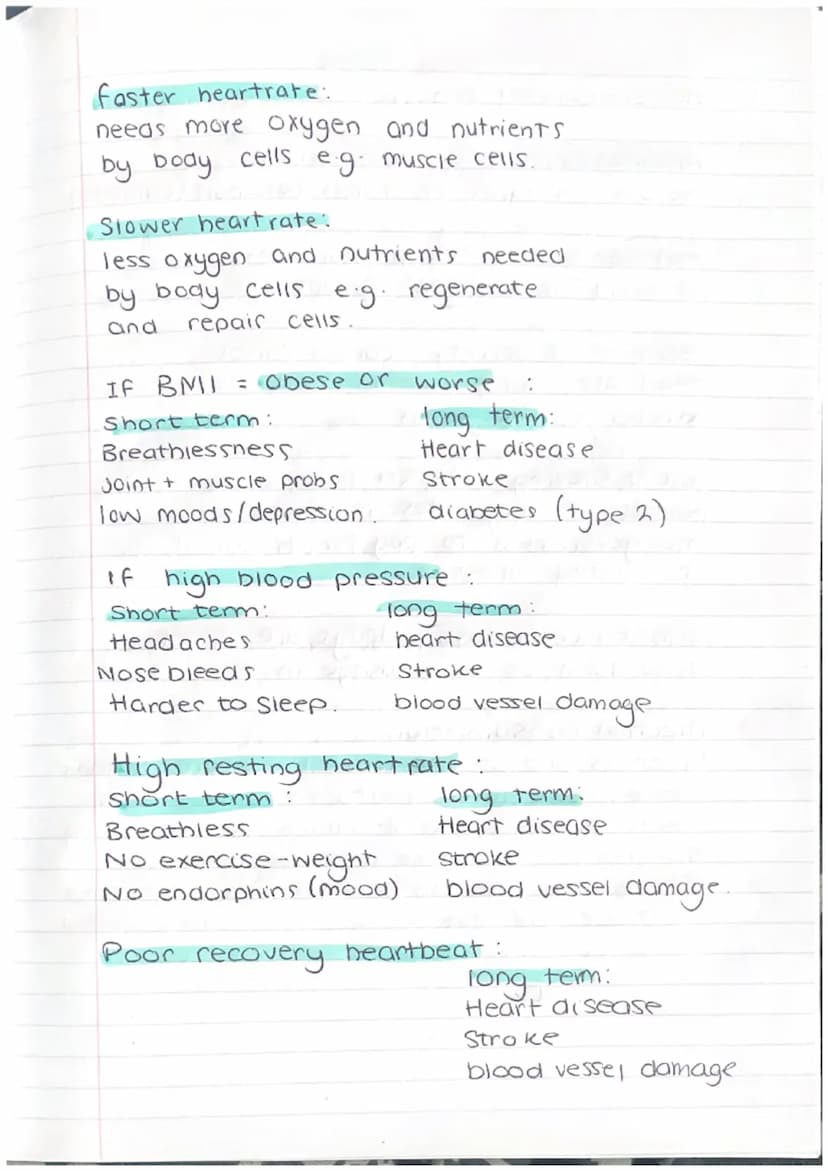 faster heartrate:
needs more oxygen and nutrients
by body cells e.g. muscle cells.
Slower heartrate:
less oxygen and nutrients needed
by body cells e.g. regenerate
and repair cells.
If BMI = Obese or worse :
Short term: long term:
Breathlessness Heart disease
Joint + muscle probs Stroke
low moods/depression. diabetes (type 2)
If high blood pressure :
Short term: long term:
Headaches heart disease
Nose bleeds Stroke
Harder to Sleep. blood vessel damage
High resting heartrate :
Short term : long term:
Breathless Heart disease
No exercise-weight stroke
No endorphins (mood) blood vessel damage.
Poor recovery heartbeat :
long term:
Heart disease
Stroke
blood vessel damage